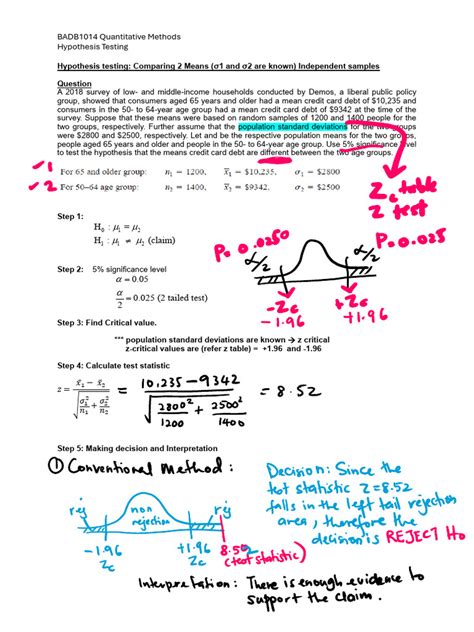 BADB1014 Quantitative Methods
Hypothesis Testing
Hypothesis testing: Comparing 2 Means (σ1 and σ2 are known) Independent samples
Question
A 2018 survey of low- and middle-income households conducted by Demos, a liberal public policy
group, showed that consumers aged 65 years and older had a mean credit card debt of $10,235 and
consumers in the 50- to 64-year age group had a mean credit card debt of $9342 at the time of the
survey. Suppose that these means were based on random samples of 1200 and 1400 people for the
two groups, respectively. Further assume that the population standard deviations for the two groups
were $2800 and $2500, respectively. Let and be the respective population means for the two groups,
people aged 65 years and older and people in the 50- to 64-year age group. Use 5% significance level
to test the hypothesis that the means credit card debt are different between the two age groups.
1 For 65 and older group: n₁ = 1200, x̄₁ = $10,235, σ₁ = $2800
2 For 50–64 age group: n₂ = 1400, x̄₂ = $9342, σ₂ = $2500
Z table
Z test
Step 1:
H₀ : μ₁ = μ₂
H₁ : μ₁ ≠ μ₂ (claim)
P=0.0250
P=0.025
α/2
α/2
Step 2: 5% significance level
α = 0.05
α/2 = 0.025 (2 tailed test)
-Zc
-1.96
+Zc
+1.96
Step 3: Find Critical value.
*** population standard deviations are known → z critical
z-critical values are (refer z table) = +1.96 and -1.96
Step 4: Calculate test statistic
z = (x̄₁ − x̄₂) / √(σ₁²/n₁ + σ₂²/n₂) = (10,235 − 9342) / √(2800²/1200 + 2500²/1400) = 8.52
Step 5: Making decision and Interpretation
① Conventional Method:
Decision: Since the
test statistic Z=8.52
falls in the left tail rejection
area, therefore the
decision is REJECT H₀
rej
non
rejection
rej
-1.96
Zc
+1.96
Zc
8.52
(test statistic)
Interpretation: There is enough evidence to
support the claim.